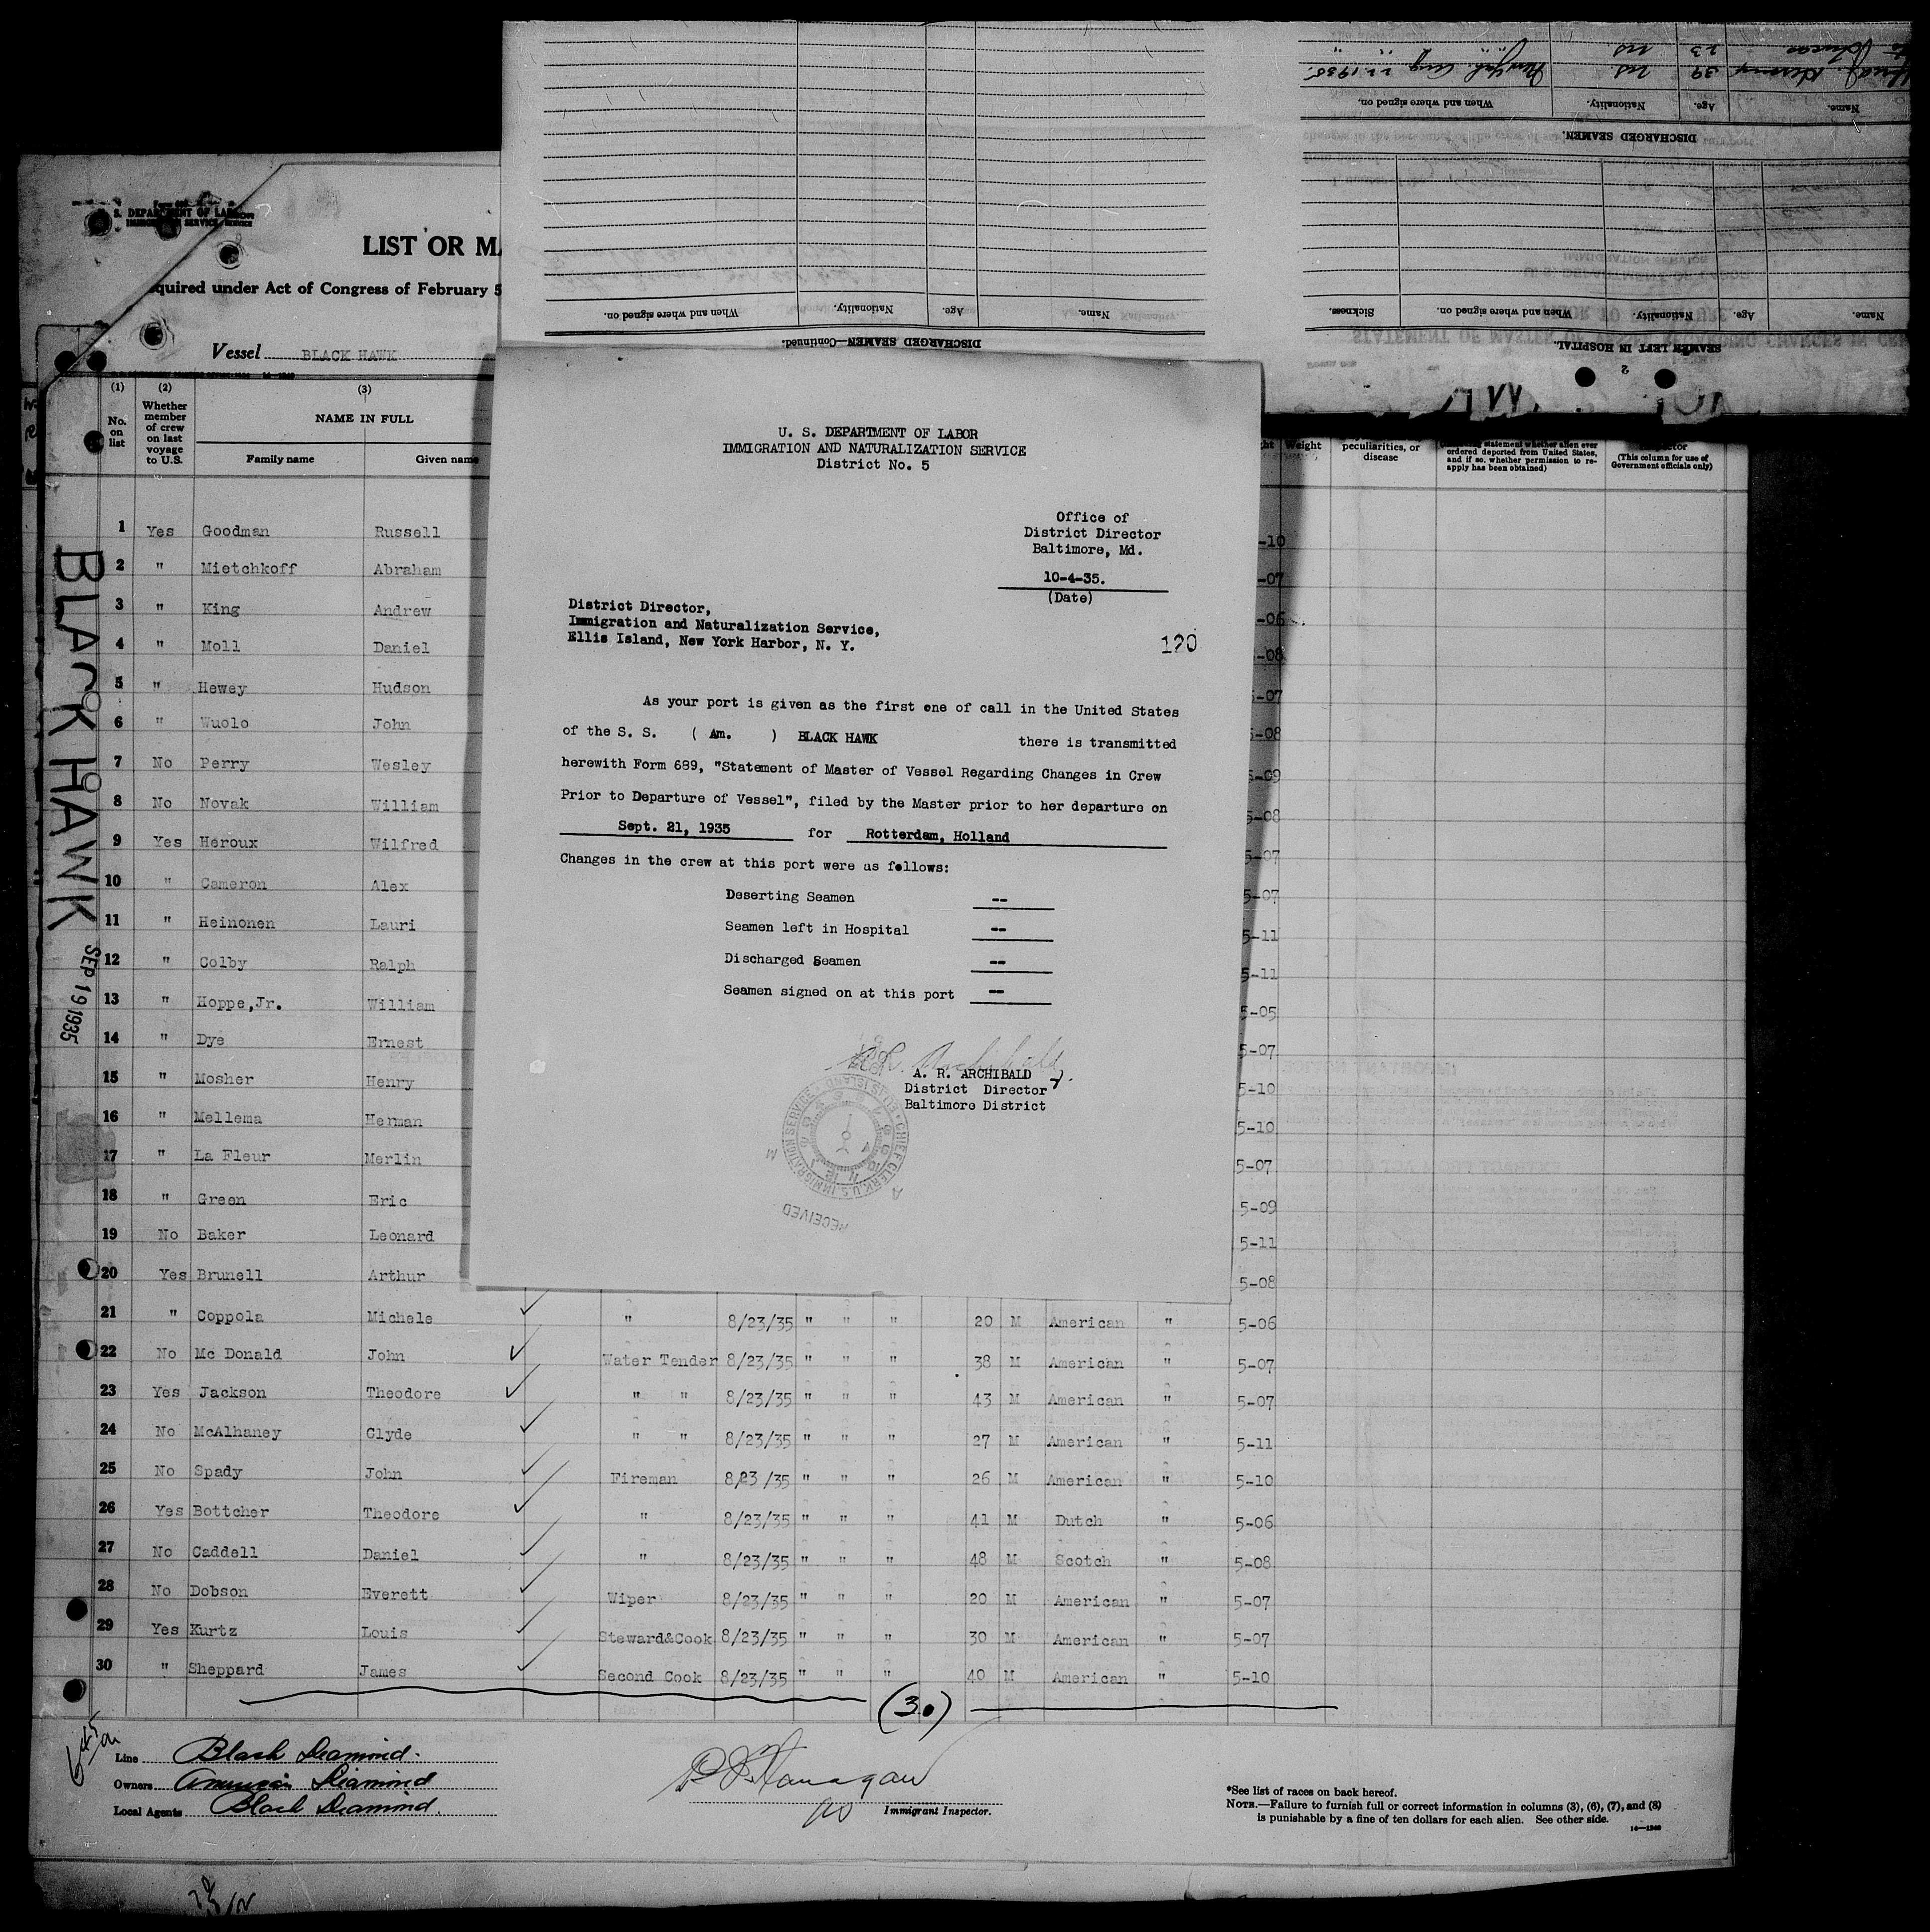 DEPARTMENT OF LABOR
IMMIGRATION SERVICE
LIST OR MA
quired under Act of Congress of February 5
Vessel BLACK HAWK
(1) (2) (3)
No. on list
Whether member of crew on last voyage to U.S.
NAME IN FULL
Family name Given name
Weight
peculiarities, or disease
statement whether alien ever ordered deported from United States, and if so, whether permission to reapply has been obtained)
(This column for use of Government officials only)
BLACK HAWK
SEP 19 1935
1 Yes Goodman Russell -10
2 " Mietchkoff Abraham -07
3 " King Andrew -06
4 " Moll Daniel -08
5 " Hewey Hudson -07
6 " Wuolo John 5-08
7 No Perry Wesley 5-09
8 No Novak William 5-08
9 Yes Heroux Wilfred 5-07
10 " Cameron Alex 5-07
11 " Heinonen Lauri 5-11
12 " Colby Ralph 5-11
13 " Hoppe,Jr. William 5-05
14 " Dye Ernest 5-07
15 " Mosher Henry 5-10
16 " Mellema Herman 5-10
17 " La Fleur Merlin 5-07
18 " Green Eric 5-09
19 No Baker Leonard 5-11
20 Yes Brunell Arthur 5-08
21 " Coppola Michele " 8/23/35 " " " 20 M American " 5-06
22 No Mc Donald John Water Tender 8/23/35 " " " 38 M American " 5-07
23 Yes Jackson Theodore " " 8/23/35 " " " 43 M American " 5-07
24 No McAlhaney Clyde " " 8/23/35 " " " 27 M American " 5-11
25 No Spady John Fireman 8/23/35 " " " 26 M American " 5-10
26 Yes Bottcher Theodore " 8/23/35 " " " 41 M Dutch " 5-06
27 No Caddell Daniel " 8/23/35 " " " 48 M Scotch " 5-08
28 No Dobson Everett Wiper 8/23/35 " " " 20 M American " 5-07
29 Yes Kurtz Louis Steward&Cook 8/23/35 " " " 30 M American " 5-07
30 " Sheppard James Second Cook 8/23/35 " " " 40 M American " 5-10
(30)
Line Black Diamond.
Owners American Diamond
Local Agents Black Diamond.
Immigrant Inspector.
*See list of races on back hereof.
NOTE.—Failure to furnish full or correct information in columns (3), (6), (7), and (8)
is punishable by a fine of ten dollars for each alien. See other side.
14—1240
U. S. DEPARTMENT OF LABOR
IMMIGRATION AND NATURALIZATION SERVICE
District No. 5
Office of
District Director
Baltimore, Md.
10-4-35.
(Date)
District Director,
Immigration and Naturalization Service,
Ellis Island, New York Harbor, N. Y.
120
As your port is given as the first one of call in the United States
of the S. S. ( Am. ) BLACK HAWK there is transmitted
herewith Form 689, "Statement of Master of Vessel Regarding Changes in Crew
Prior to Departure of Vessel", filed by the Master prior to her departure on
Sept. 21, 1935 for Rotterdam, Holland
Changes in the crew at this port were as follows:
Deserting Seamen --
Seamen left in Hospital --
Discharged Seamen --
Seamen signed on at this port --
A. R. ARCHIBALD
District Director
Baltimore District
RECEIVED
CHIEF CLERK U.S. IMMIGRATION SERVICE ELLIS ISLAND
DISCHARGED SEAMEN—Continued.
Name. Age. Nationality. When and where signed on.
2
SEAMEN LEFT IN HOSPITAL.
Name. Age. Nationality. When and where signed on. Sickness.
DISCHARGED SEAMEN.
Name. Age. Nationality. When and where signed on.
39 1935
23